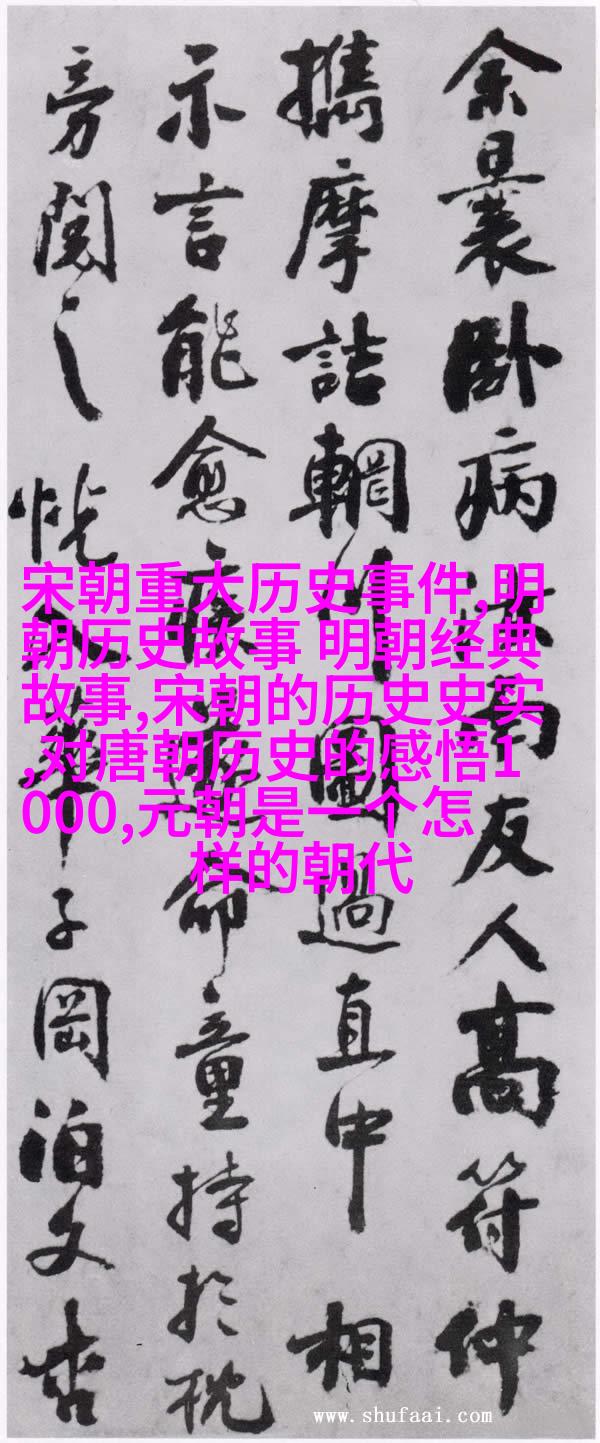 余曩卧病汝南友人高符仲
攜摩詰輞川圖過直中相
示言能愈疾遂命童持於枕
旁閱之恍入華子岡泊文杏
宋朝重大历史事件,明
朝历史故事 明朝经典
故事,宋朝的历史史实
,对唐朝历史的感悟1
000,元朝是一个怎
样的朝代
www.shufaai.com